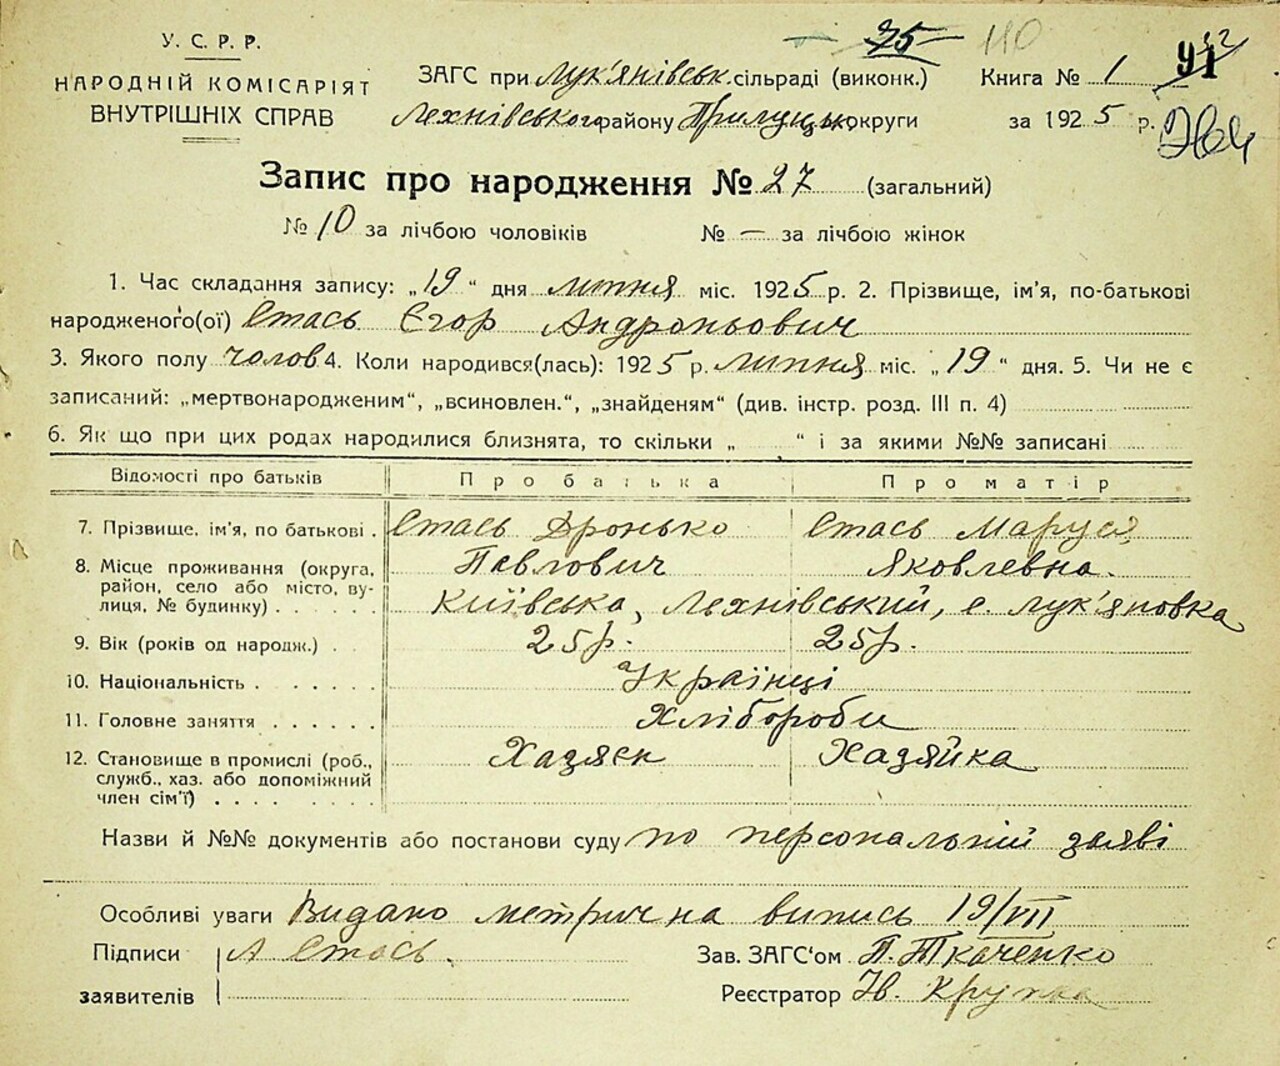 У. С. Р. Р.
НАРОДНІЙ КОМІСАРІЯТ
ВНУТРІШНІХ СПРАВ
75 110
ЗАГС при Лук'янівськ. сільраді (виконк.) Книга № 1 91
Лехнівського району Прилуцьк. округи за 1925 р.
Запис про народження № 27 (загальний)
№ 10 за лічбою чоловіків № — за лічбою жінок
1. Час складання запису: „19“ дня липня міс. 1925 р. 2. Прізвище, ім'я, по-батькові
народженого(ої) Стась Єгор Андроньович
3. Якого полу чолов 4. Коли народився(лась): 1925 р. липня міс. „19“ дня. 5. Чи не є
записаний: „мертвонародженим“, „всиновлен.“, „знайденям“ (див. інстр. розд. III п. 4)
6. Як що при цих родах народилися близнята, то скільки „ “ і за якими №№ записані
Відомості про батьків Про батька Про матір
7. Прізвище, ім'я, по батькові . Стась Дронько Стась Маруся
Павлович Яковлевна.
8. Місце проживання (округа,
район, село або місто, ву-
лиця, № будинку) . . . . . . Київська, Лехнівський, с. Лук'яновка
9. Вік (років од народж.) . 25р. 25р.
10. Національність . . . . . . Українці
11. Головне заняття . . . . . . Хлібороби
12. Становище в промислі (роб.,
служб., хаз. або допоміжний
член сім'ї) . . . . . . Хазяєн Хазяйка
Назви й №№ документів або постанови суду по персональній заяві
Особливі уваги Видано метрична випись 19/VII
Підписи А Стась. Зав. ЗАГС'ом П. Ткаченко
заявителів Реєстратор Ів.